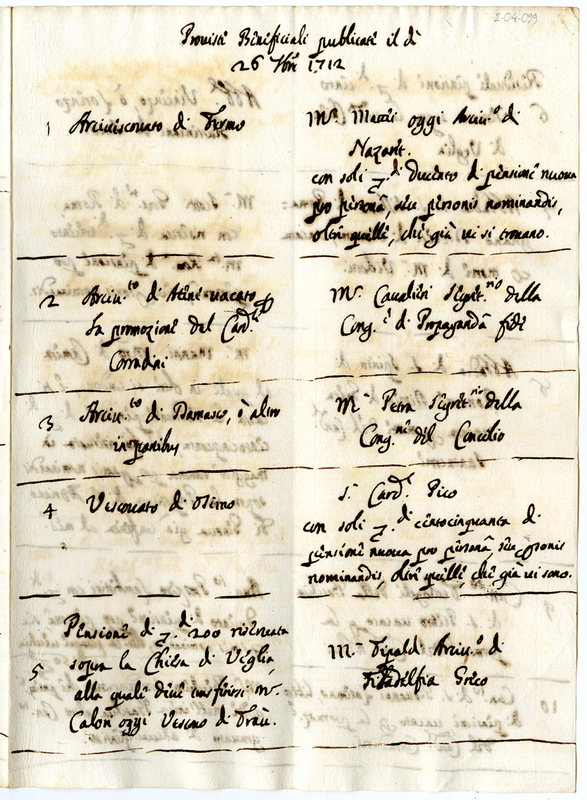 2-04-099
Proviste Beneficiali publicate il di
26 7bre 1712
1 Arcivescovato di Fermo
Mr. Mattei oggi Arciv.o di
Nazaret.
con soli di ducento di pensione nuova
pro persona, seu personis nominandis,
oltre quelle, che già vi si trovano.
2 Arciv.to di Atene vacato
la promozione del Card.
Corradini
Mr. Cavalieri Segret.rio della
Cong.e di Propaganda fide
3 Arciv.to di Damasco, ò altro
in partibus
Mr. Petra Segret.rio della
Cong.ne del Concilio
4 Vescovato di Osimo
S. Card. Pico
con soli di centocinquanta di
pensione nuova pro persona seu personis
nominandis, oltre quelle, che già vi sono.
5 Pensione di di 200 riservata
sopra la Chiesa di Veglia,
alla quale deve trasferirsi Mr.
Calor oggi Vescovo di Traù.
Mr. Tipaldi Arciv.o di
Filadelfia Greco